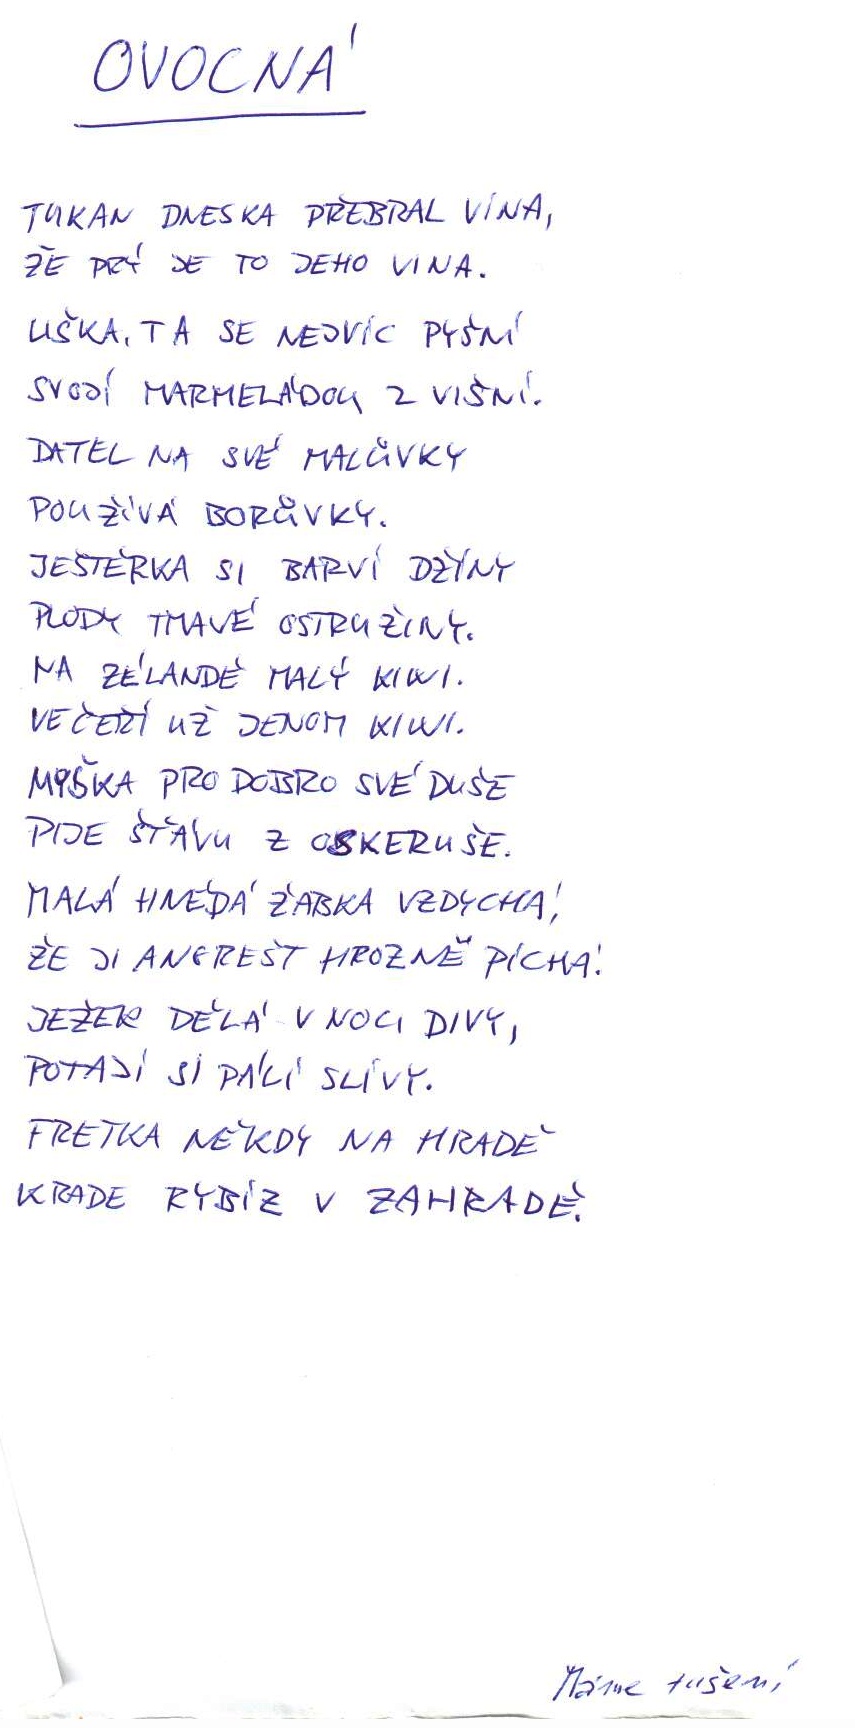 OVOCNÁ
TUKAN DNESKA PŘEBRAL VÍNA,
ŽE PRÝ JE TO JEHO VINA.
UŠKA, TA SE NEJVÍC PYŠNÍ
SVOJÍ MARMELÁDOU Z VIŠNÍ.
DATEL NA SVÉ MALŮVKY
POUŽÍVÁ BORŮVKY.
JEŠTĚRKA SI BARVÍ DŽÍNY
PLODY TMAVÉ OSTRUŽINY.
NA ZÉLANDĚ MALÝ KIWI.
VEČEŘÍ UŽ JENOM KIWI.
MYŠKA PRO DOBRO SVÉ DUŠE
PIJE ŠŤÁVU Z OSKERUŠE.
MALÁ HNĚDÁ ŽABKA VZDYCHÁ,
ŽE JI ANGREŠT HROZNĚ PÍCHÁ.
JEŽEK DĚLÁ V NOCI DIVY,
POTAJÍ SI PÁLÍ SLÍVY.
FRETKA NĚKDY NA HRADĚ
KRADE RYBÍZ V ZAHRADĚ.
Máme tušení